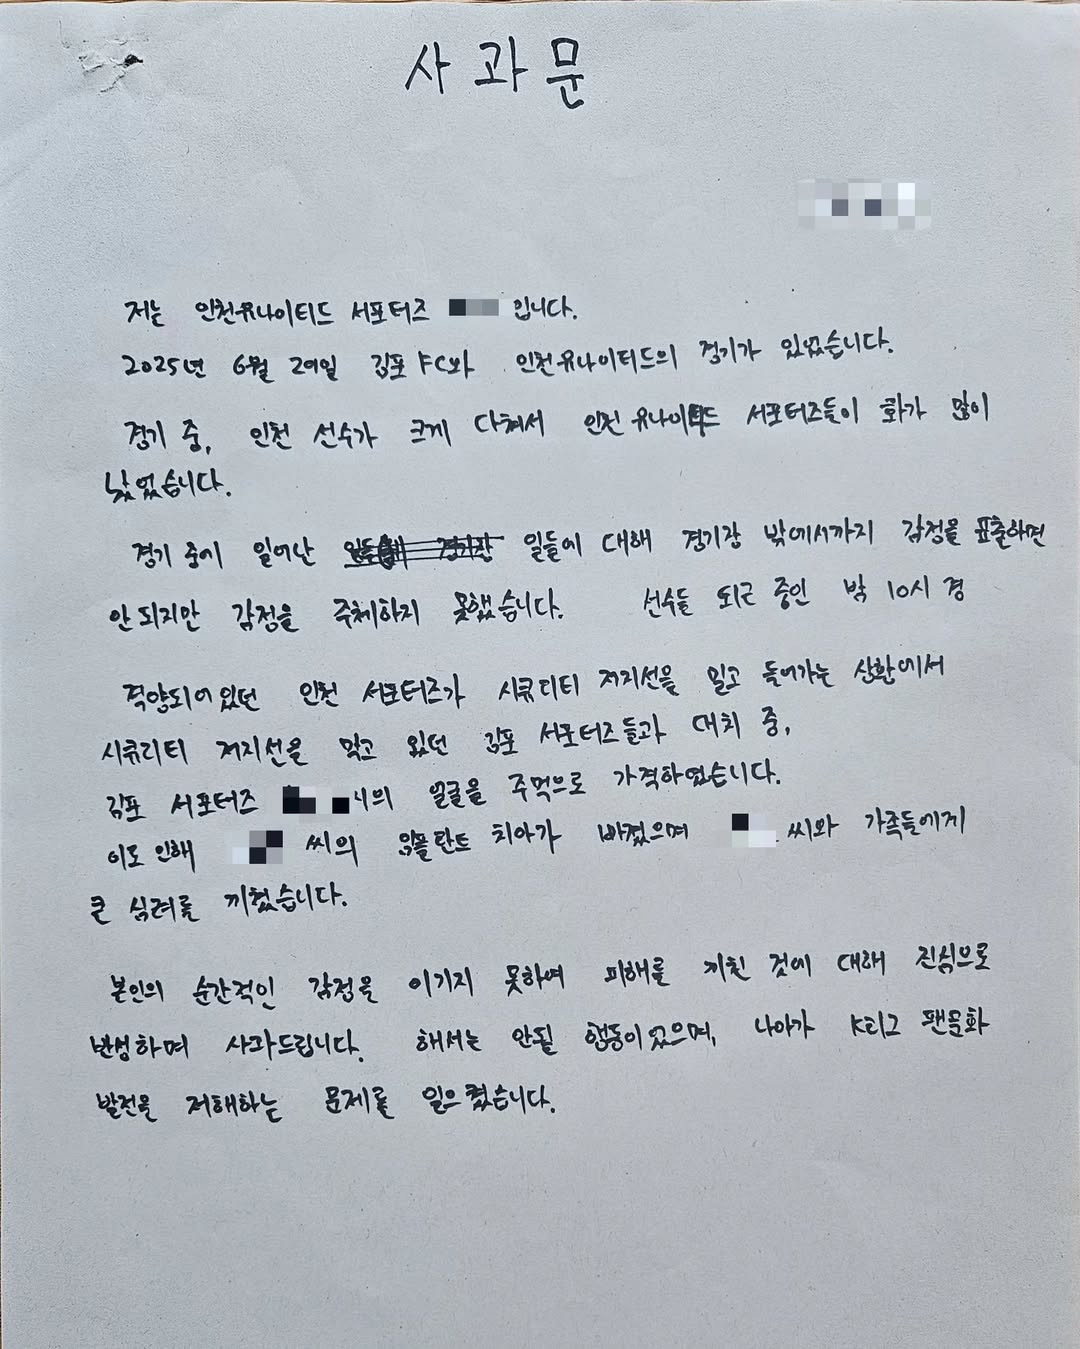 사과문
저는 인천유나이티드 서포터즈 입니다.
2025년 6월 29일 김포 FC와 인천유나이티드의 경기가 있었습니다.
경기 중, 인천 선수가 크게 다쳐서 인천유나이티드 서포터즈들이 화가 많이
났었습니다.
경기 중에 일어난 일들에 대해 경기장 밖에서까지 감정을 표출하면
안되지만 감정을 주체하지 못했습니다. 선수들 퇴근 중인 밤 10시 경
격양되어있던 인천 서포터즈가 시큐리티 저지선을 밀고 들어가는 상황에서
시큐리티 저지선을 막고 있던 김포 서포터즈들과 대치 중,
김포 서포터즈 의 얼굴을 주먹으로 가격하였습니다.
이로 인해 씨의 임플란트 치아가 빠졌으며 씨와 가족들에게
큰 심려를 끼쳤습니다.
본인의 순간적인 감정을 이기지 못하여 피해를 끼친 것에 대해 진심으로
반성하며 사과드립니다. 해서는 안될 행동이었으며, 나아가 K리그 팬문화
발전을 저해하는 문제를 일으켰습니다.